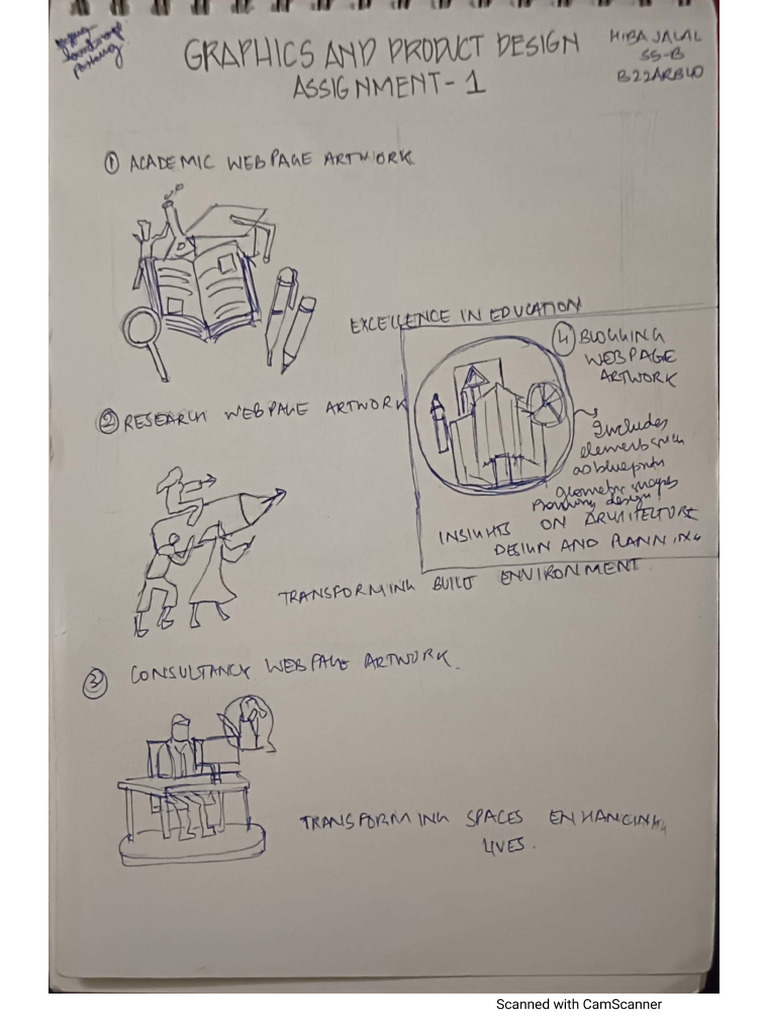 GRAPHICS AND PRODUCT DESIGN
ASSIGNMENT-1
HIBA JALAL
S5-B
B22ARB40
① ACADEMIC WEBPAGE ARTWORK
EXCELLENCE IN EDUCATION
② RESEARCH WEBPAGE ARTWORK
④ BLOGGING
WEBPAGE
ARTWORK
Includes
elements such
as blueprints
geometric images
design
INSIGHTS ON ARCHITECTURE
DESIGN AND PLANNING
TRANSFORMING BUILT ENVIRONMENT
③ CONSULTANCY WEBPAGE ARTWORK
TRANSFORMING SPACES ENHANCING
LIVES.
Scanned with CamScanner